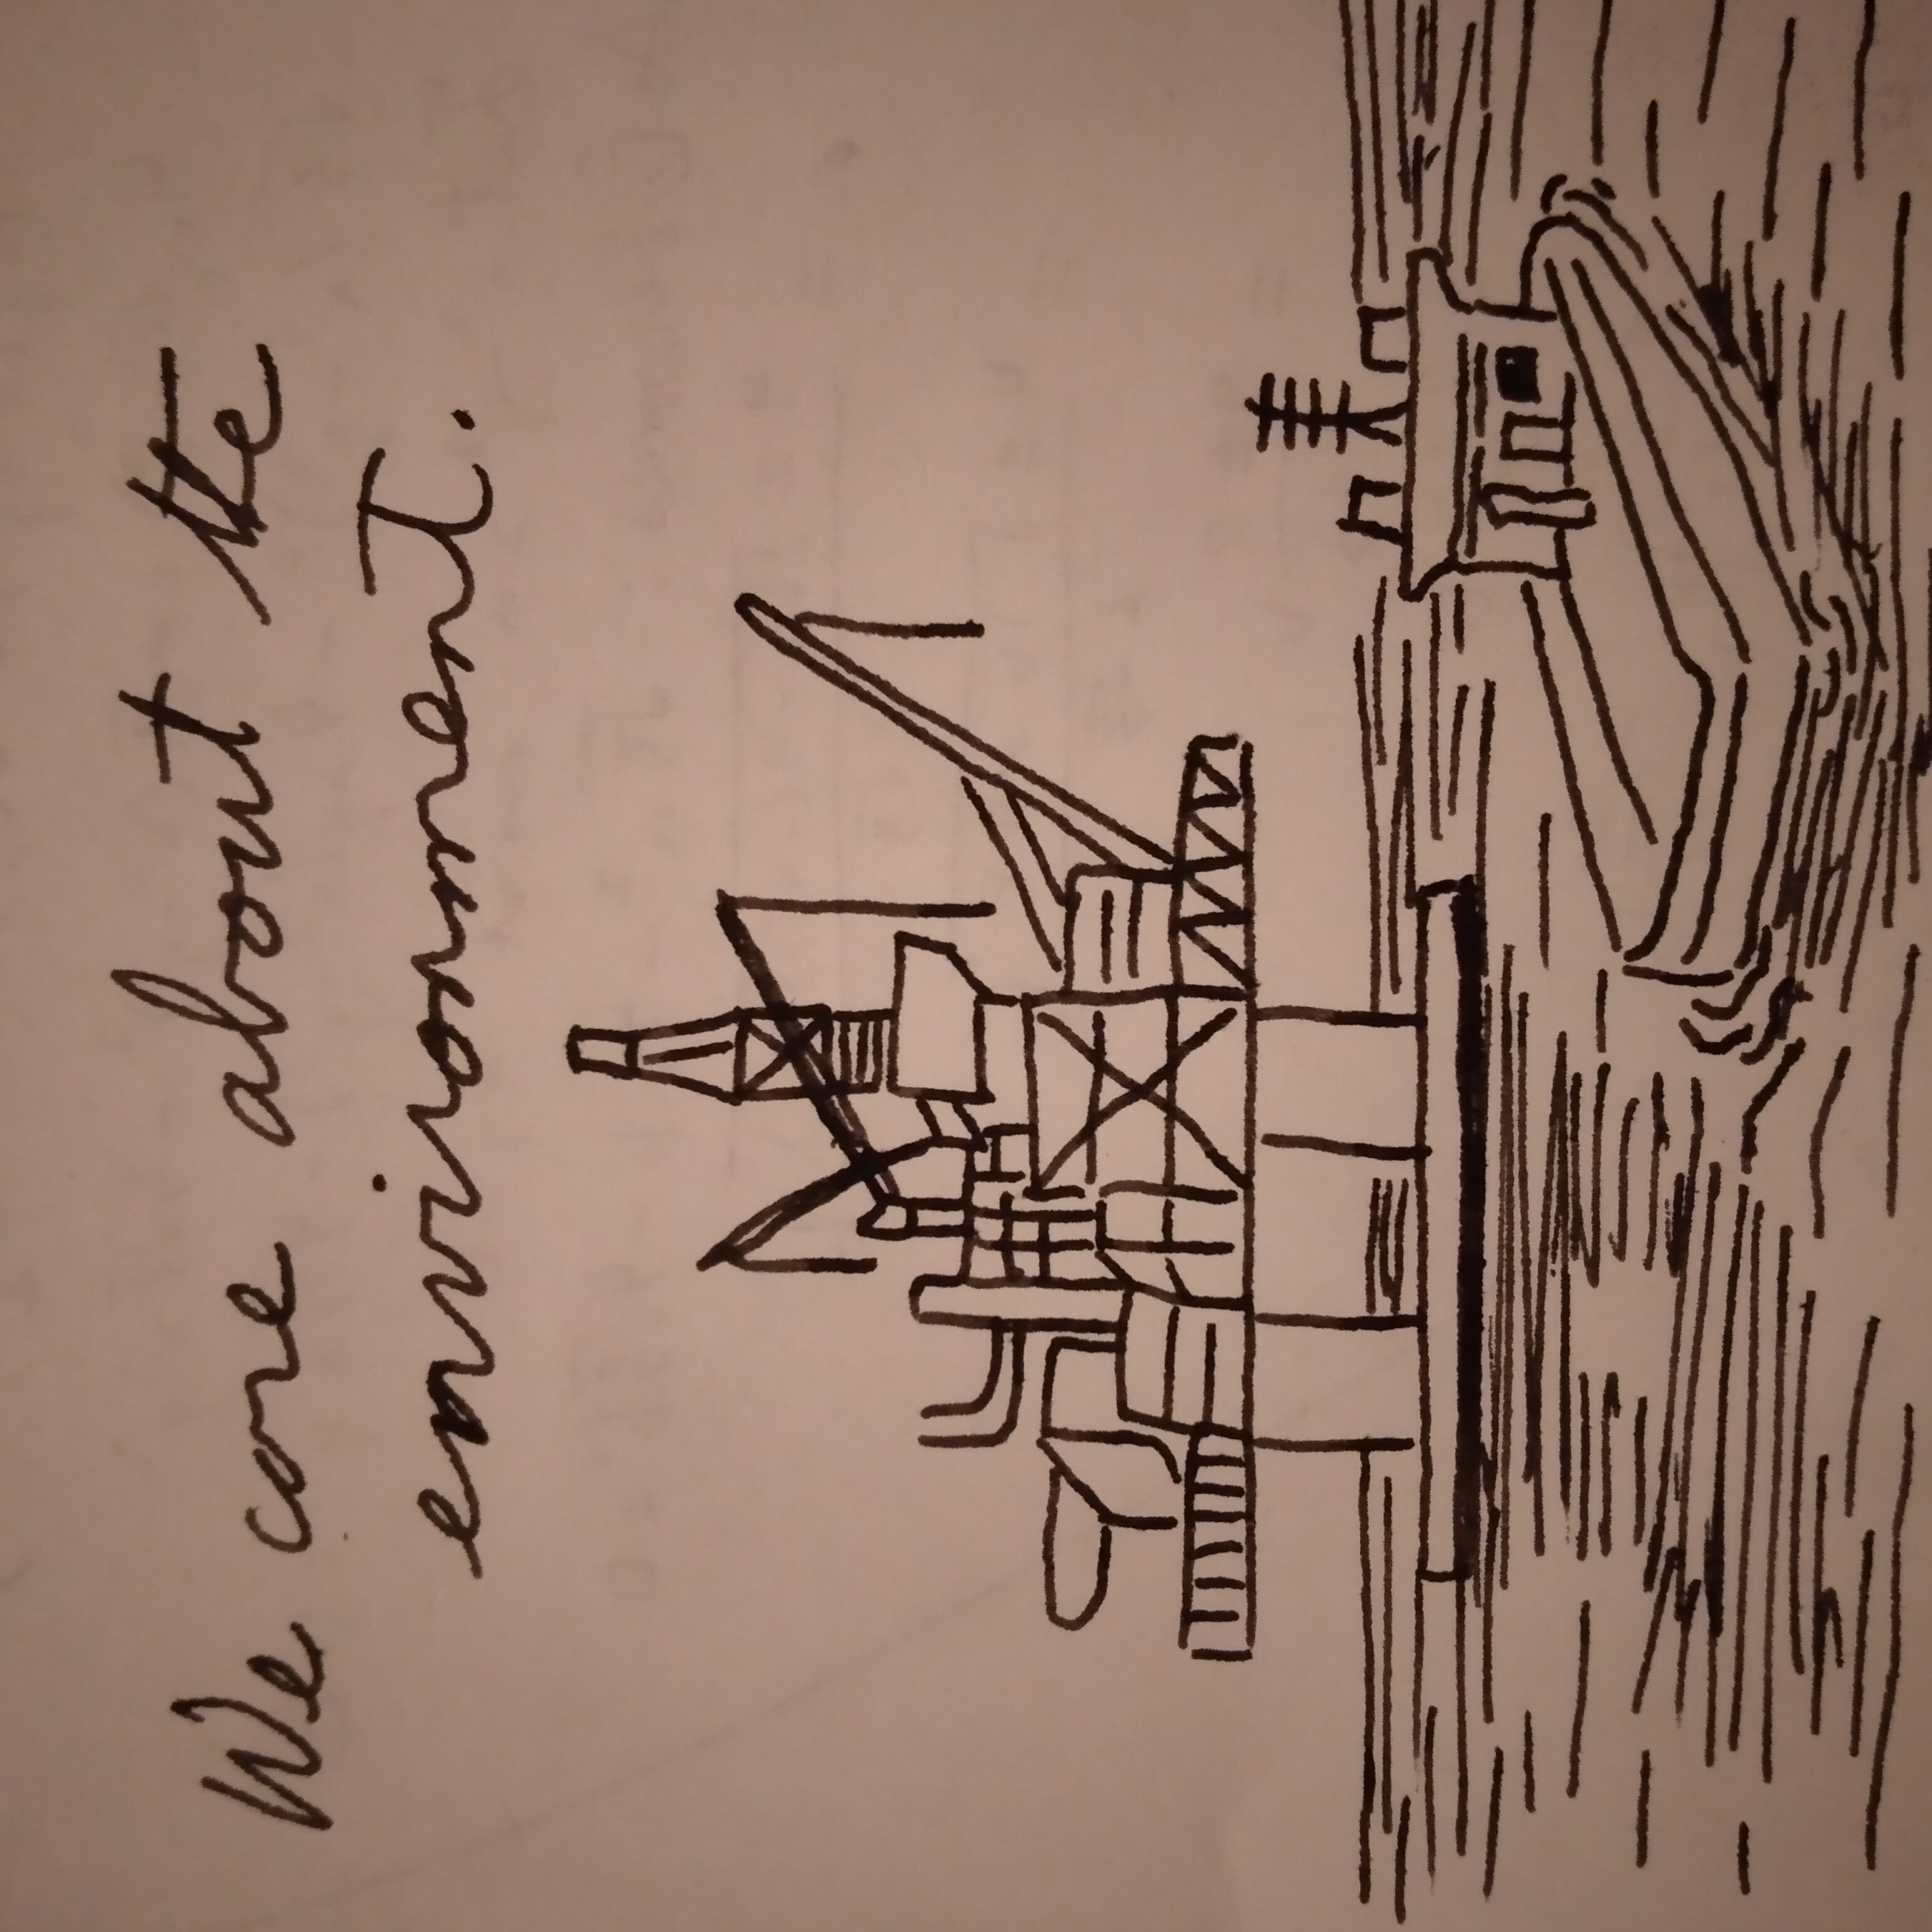 We care about the
environment.